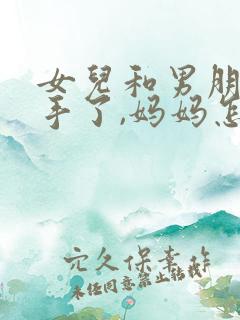 女兒和男朋
手了,妈妈怎
穴久保幸作
未经同意禁止转载